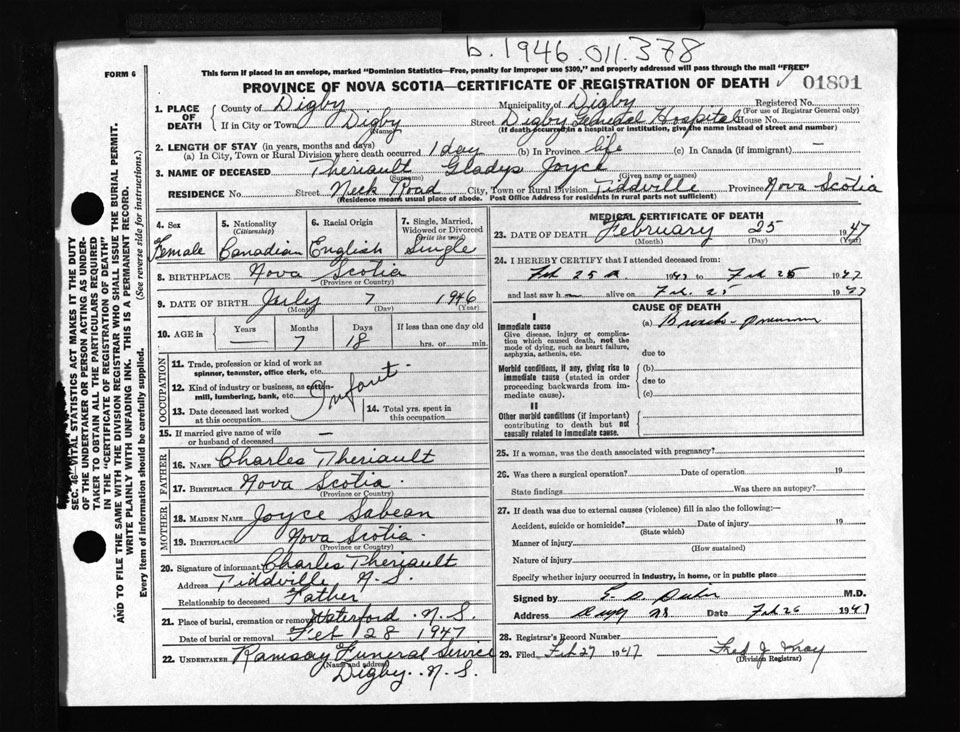 b. 1946.011.378
FORM 6
This form if placed in an envelope, marked "Dominion Statistics—Free, penalty for improper use $300," and properly addressed will pass through the mail "FREE"
PROVINCE OF NOVA SCOTIA—CERTIFICATE OF REGISTRATION OF DEATH
01801
1. PLACE OF DEATH
County of Digby Municipality of Digby Registered No.
(For use of Registrar General only)
If in City or Town Digby Street Digby General Hospital House No.
(Name) (If death occurred in a hospital or institution, give the name instead of street and number)
2. LENGTH OF STAY (in years, months and days)
(a) In City, Town or Rural Division where death occurred 1 day (b) In Province life (c) In Canada (if immigrant) —
3. NAME OF DECEASED Theriault Gladys Joyce
(Surname) (Given name or names)
RESIDENCE No. Street Neck Road City, Town or Rural Division Tiddville Province Nova Scotia
(Residence means usual place of abode. Post Office Address for residents in rural parts not sufficient)
4. Sex 5. Nationality (Citizenship) 6. Racial Origin 7. Single, Married, Widowed or Divorced (Write the word)
Female Canadian English Single
8. BIRTHPLACE Nova Scotia
(Province or Country)
9. DATE OF BIRTH July 7 1946
(Month) (Day) (Year)
10. AGE in Years Months Days If less than one day old
— 7 18 hrs. or min.
OCCUPATION
11. Trade, profession or kind of work as spinner, teamster, office clerk, etc.
12. Kind of industry or business, as cotton-mill, lumbering, bank, etc. Infant.
13. Date deceased last worked at this occupation
14. Total yrs. spent in this occupation
15. If married give name of wife or husband of deceased —
FATHER
16. NAME Charles Theriault
17. BIRTHPLACE Nova Scotia.
(Province or Country)
MOTHER
18. MAIDEN NAME Joyce Sabean
19. BIRTHPLACE Nova Scotia.
(Province or Country)
20. Signature of informant Charles Theriault
Address Tiddville, N.S.
Relationship to deceased Father
21. Place of burial, cremation or removal Waterford. N.S.
Date of burial or removal Feb 28 1947
22. UNDERTAKER Ramsay Funeral Service
(Name and address)
Digby. N.S.
MEDICAL CERTIFICATE OF DEATH
23. DATE OF DEATH February 25 1947
(Month) (Day) (Year)
24. I HEREBY CERTIFY that I attended deceased from:
Feb 25 1947 to Feb 25 1947
and last saw h alive on Feb. 25 1947
CAUSE OF DEATH
I
Immediate cause
Give disease, injury or complication which caused death, not the mode of dying, such as heart failure, asphyxia, asthenia, etc.
(a)
due to
Morbid conditions, if any, giving rise to immediate cause (stated in order proceeding backwards from immediate cause).
(b)
due to
(c)
II
Other morbid conditions (if important) contributing to death but not causally related to immediate cause.
25. If a woman, was the death associated with pregnancy?
26. Was there a surgical operation? Date of operation 19
State findings Was there an autopsy?
27. If death was due to external causes (violence) fill in also the following:—
Accident, suicide or homicide? Date of injury 19
(State which)
Manner of injury
(How sustained)
Nature of injury
Specify whether injury occurred in industry, in home, or in public place
Signed by M.D.
Address Date Feb 26 1947
28. Registrar's Record Number
29. Filed Feb 27 1947 Fred J. May
(Division Registrar)
VITAL STATISTICS ACT MAKES IT THE DUTY
OF THE UNDERTAKER OR PERSON ACTING AS UNDER-
TAKER TO OBTAIN ALL THE PARTICULARS REQUIRED
IN THE "CERTIFICATE OF REGISTRATION OF DEATH"
AND TO FILE THE SAME WITH THE DIVISION REGISTRAR WHO SHALL ISSUE THE BURIAL PERMIT.
WRITE PLAINLY WITH UNFADING INK. THIS IS A PERMANENT RECORD.
Every item of information should be carefully supplied. (See reverse side for instructions.)